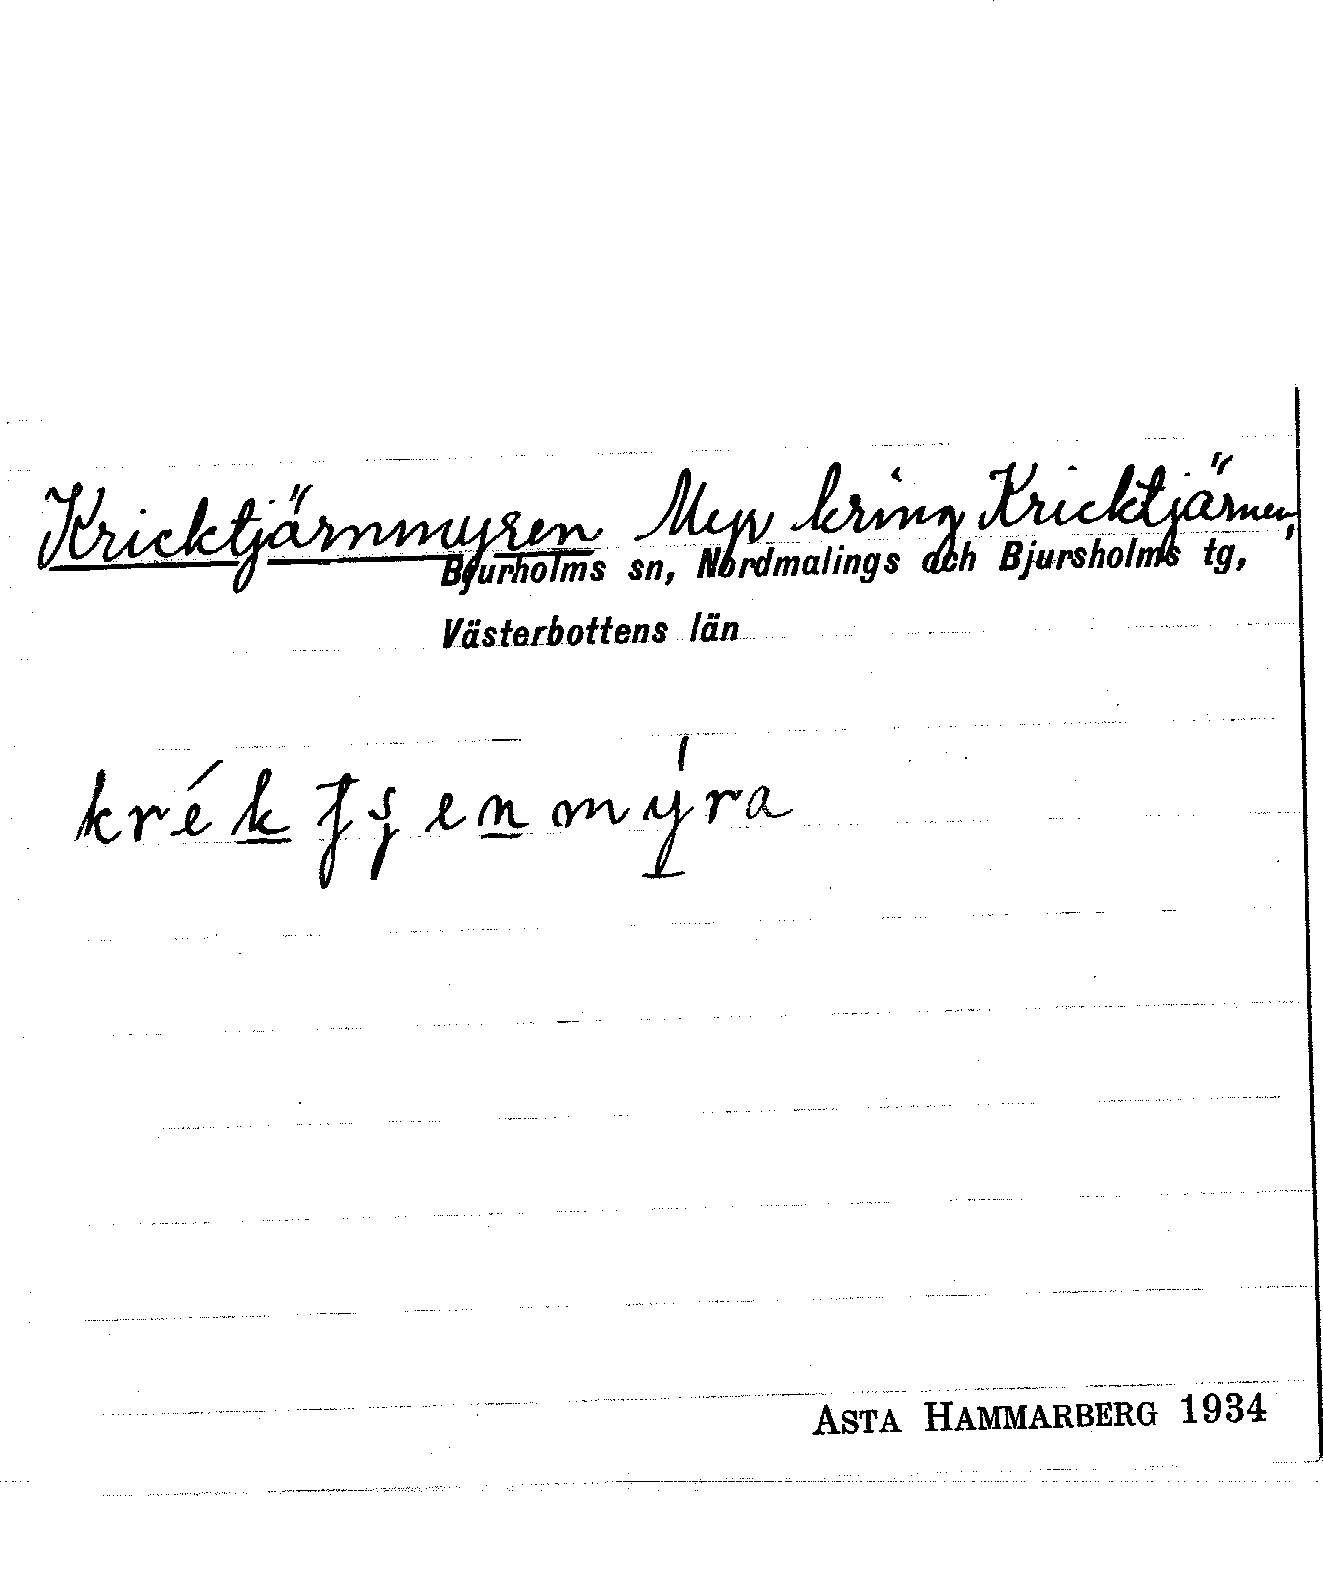 Kricktjärnmyren Myr kring Kricktjärnen,
Bjurholms sn, Nordmalings och Bjursholms tg,
Västerbottens län
ASTA HAMMARBERG 1934